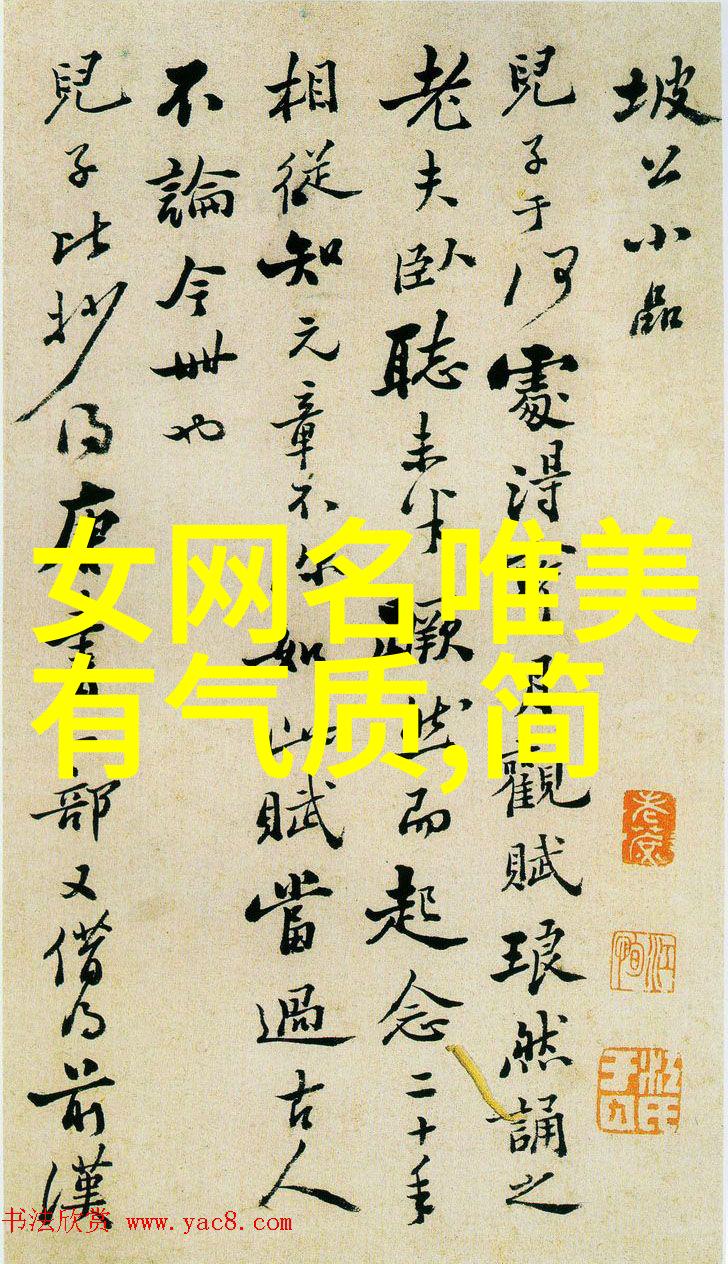 坡公小品
兒子于何處得觀賦琅然誦之
老夫臥聽未半蹶然而起念二十年
相從知元章不如此賦當過古人
不論今卋也
兒子比抄得唐書一部又借得前漢
女网名唯美
有气质,简
书法欣赏 www.yac8.com